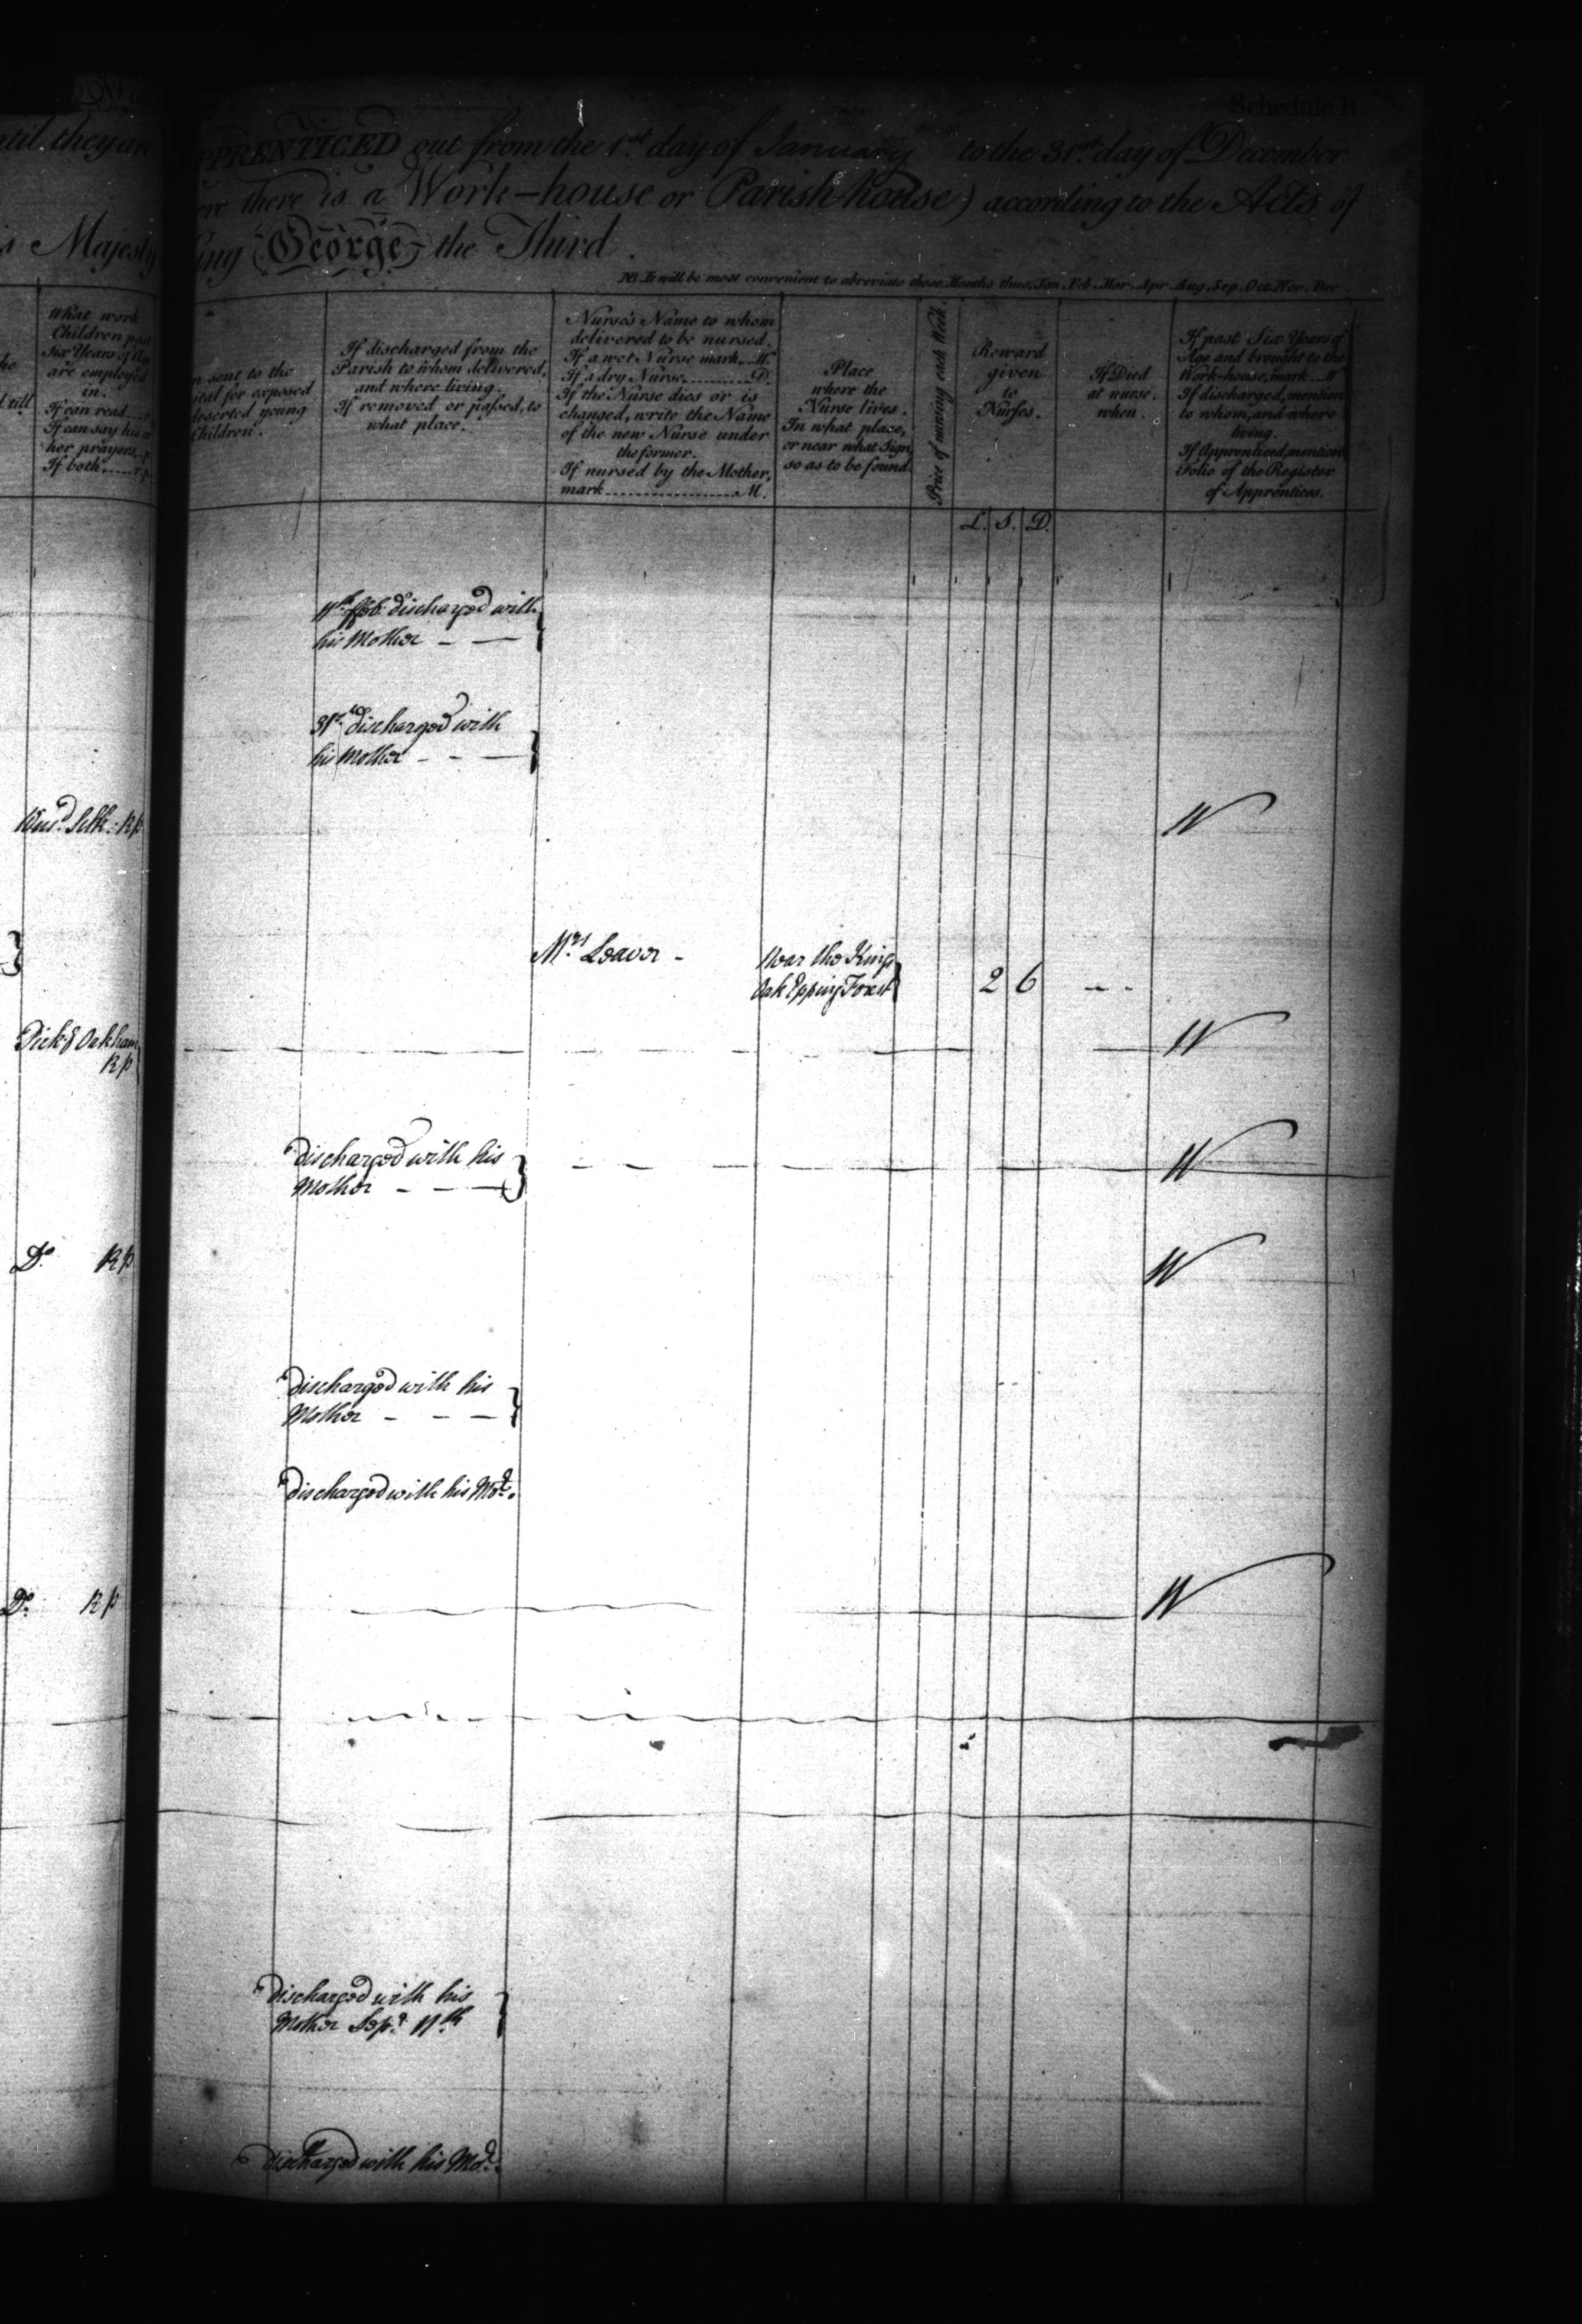 Schedule B
until they are
APPRENTICED out from the 1st. day of January to the 31st. day of December
there is a Work-house or Parish-house) according to the Acts of
Majesty
King George the Third.
NB. It will be most convenient to abreviate these Months thus, Jan. Feb. Mar. Apr. Aug. Sep. Oct. Nov. Dec.
What work
Children past
Six Years of Age
are employed
in.
If can read....r.
If can say his or
her prayers...p.
If both.......r.p.
till
sent to the
for exposed
deserted young
Children.
If discharged from the
Parish to whom delivered,
and where living.
If removed, or passed, to
what place.
Nurse's Name to whom
delivered to be nursed.
If a wet Nurse mark...W.
If a dry Nurse............D.
If the Nurse dies or is
changed, write the Name
of the new Nurse under
the former.
If nursed by the Mother,
mark....................M.
Place
where the
Nurse lives.
In what place,
or near what Sign,
so as to be found.
Price of nursing each Week.
Reward
given
to
Nurses.
L. S. D.
If Died
at nurse.
when.
If past Six Years of
Age and brought to the
Work-house, mark...W
If discharged, mention
to whom, and where
living.
If Apprenticed, mention
Folio of the Register
of Apprentices.
11th. ffeb. discharged with
his Mother - —
31st. discharged with
his Mother - - —
Silk. Rp W
Mrs. Leaver - Near the Kings
Oak Epping Forest 2 6 - -
Pick.g Oakham
Rp W
Discharged with his
Mother - - — W
Do. Rp W
Discharged with his
Mother - - —
Discharged with his Mor.
Do. Rp W
Discharged with his
Mother Sepr. 11th
Discharged with his Mor.